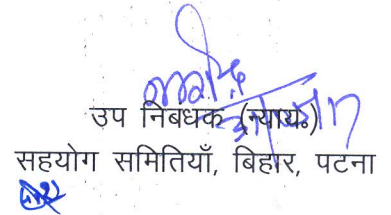 उप निबंधक (न्याय०)
सहयोग समितियाँ, बिहार, पटना